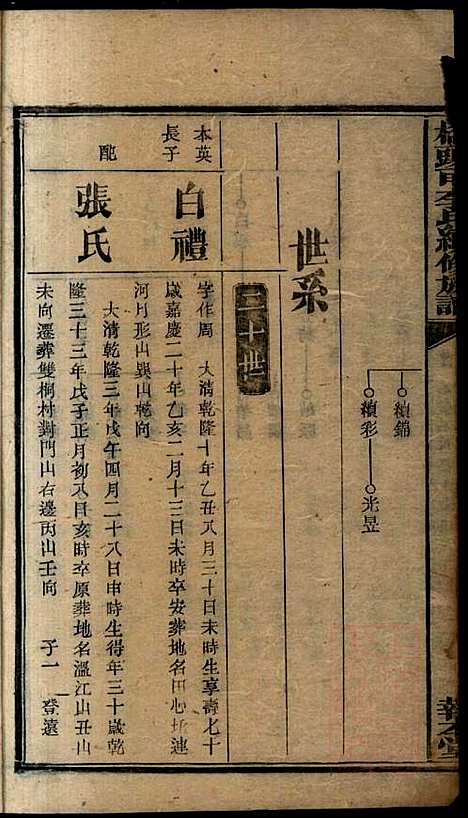 續錦
續彩 光昱
世系
二十世
本英
長子
白禮
字作周 大清乾隆十年乙丑八月三十日未時生享壽七十
歲嘉慶二十年乙亥二月十三日未時卒安葬地名田心坵連
河月形山巽山乾向
配
張氏
大清乾隆三年戊午四月二十八日申時生得年三十歲乾
隆三十三年戊子正月初八日亥時卒原葬地名溫江山丑山
未向遷葬雙桐村對門山右邊丙山壬向 子一 啓遠